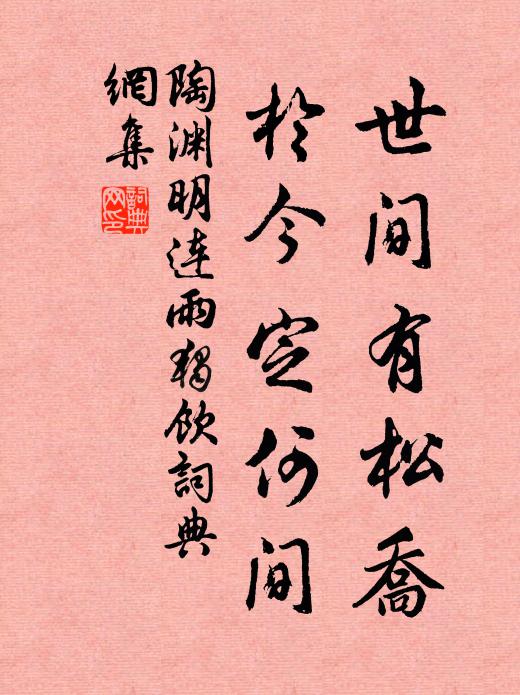 世间有松喬
於今定何间
陶渊明连雨独饮詞典
網集
詞典网印